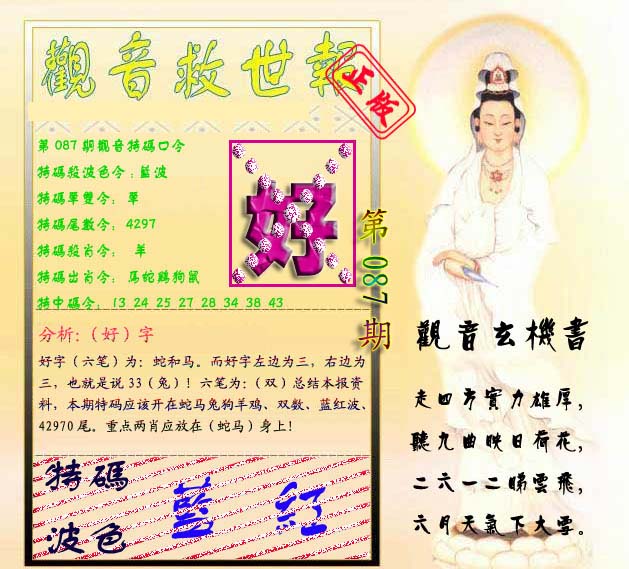 觀音救世報
正版
第 087 期觀音特碼口令
特碼殺波色令:藍波
特碼單雙令: 單
特碼尾數令: 4297
特碼殺肖令: 羊
特碼出肖令: 馬蛇鷄狗鼠
特中碼令: 13 24 25 27 28 34 38 43
好
第 087 期
分析:（好）字
好字（六笔）为：蛇和马。而好字左边为三，右边为
三，也就是说 33（兔）！六笔为：（双）总结本报资
料，本期特码应该开在蛇马兔狗羊鸡、双数、蓝红波、
42970 尾。重点两肖应放在（蛇马）身上!
特碼
波色
藍 紅
觀音玄機書
走四方實力雄厚，
聽九曲映日荷花，
二六一二睇雲飛，
六月天氣下大雪。